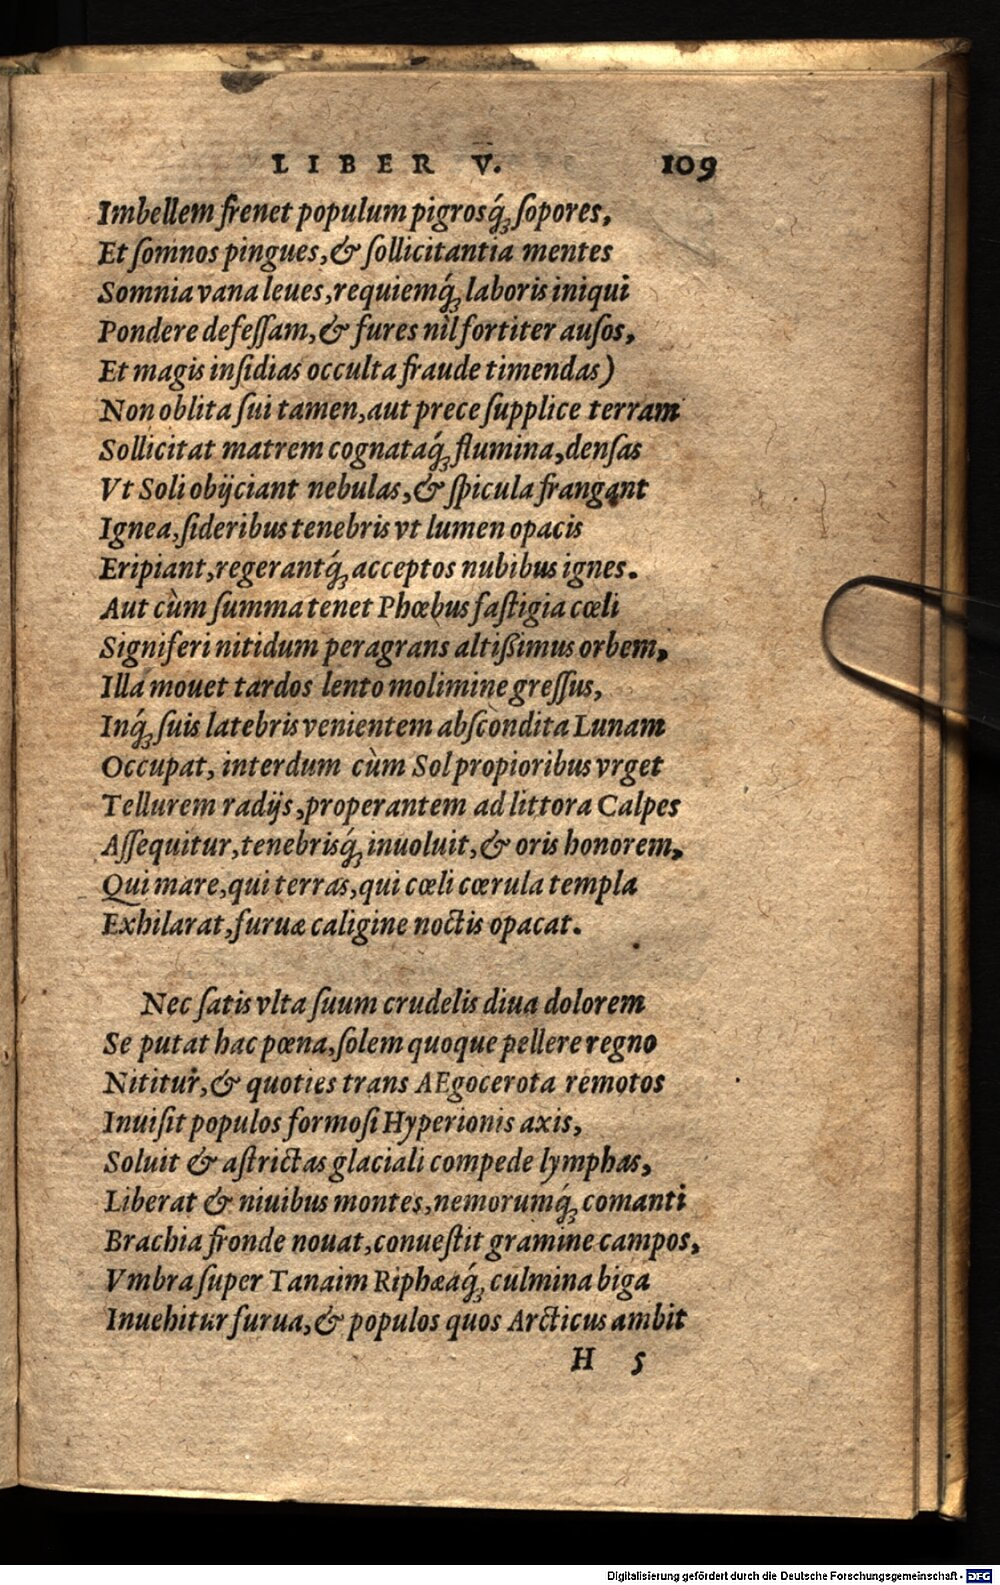 LIBER V. 109
Imbellem frenet populum pigrosq́; ſopores,
Et ſomnos pingues, & ſollicitantia mentes
Somnia vana leues, requiemq́; laboris iniqui
Pondere defeſſam, & fures nil fortiter auſos,
Et magis inſidias occulta fraude timendas)
Non oblita ſui tamen, aut prece ſupplice terram
Sollicitat matrem cognataq́; flumina, denſas
Vt Soli obijciant nebulas, & ſpicula frangant
Ignea, ſideribus tenebris vt lumen opacis
Eripiant, regerantq́; acceptos nubibus ignes.
Aut cùm ſumma tenet Phœbus faſtigia cœli
Signiferi nitidum peragrans altißimus orbem,
Illa mouet tardos lento molimine greſſus,
Inq́; ſuis latebris venientem abſcondita Lunam
Occupat, interdum cùm Sol propioribus vrget
Tellurem radijs, properantem ad littora Calpes
Aſſequitur, tenebrisq́; inuoluit, & oris honorem,
Qui mare, qui terras, qui cœli cœrula templa
Exhilarat, furuæ caligine noctis opacat.
Nec ſatis vlta ſuum crudelis diua dolorem
Se putat hac pœna, ſolem quoque pellere regno
Nititur, & quoties trans AEgocerota remotos
Inuiſit populos formoſi Hyperionis axis,
Soluit & aſtrictas glaciali compede lymphas,
Liberat & niuibus montes, nemorumq́; comanti
Brachia fronde nouat, conueſtit gramine campos,
Vmbra ſuper Tanaim Riphæaq́; culmina biga
Inuehitur furua, & populos quos Arcticus ambit
H 5
Digitalisierung gefördert durch die Deutsche Forschungsgemeinschaft - DFG